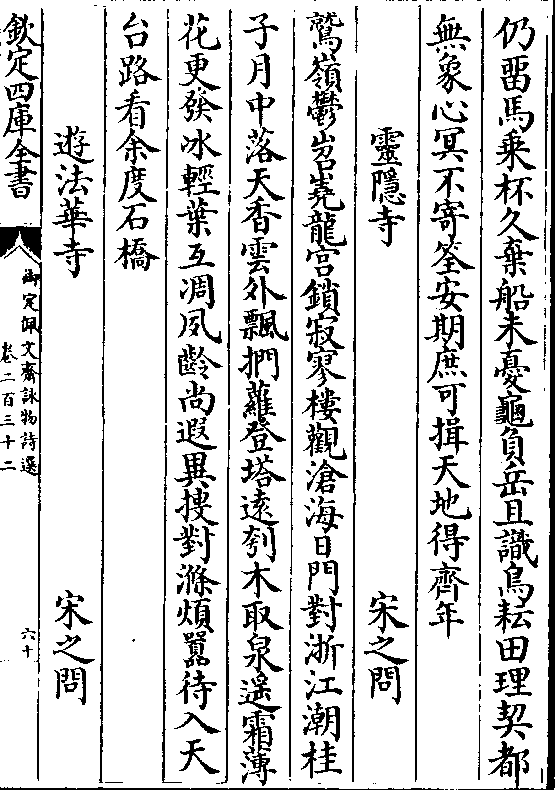 仍畱馬乗杯久棄船未憂龜負岳且識鳥耘田理契都
無象心冥不寄筌安期庶可揖天地得齊年
靈隱寺　宋之問
鷲嶺鬱岧嶤龍宮鎖寂寥樓觀滄海日門對浙江潮桂
子月中落天香雲外飄捫蘿登塔遠刳木取泉遥霜薄
花更發冰輕葉互凋夙齡尚遐異搜對滌煩囂待入天
台路看余度石橋
遊法華寺　宋之問
欽定四庫全書
御定佩文齋詠物詩選
卷二百三十二
六十